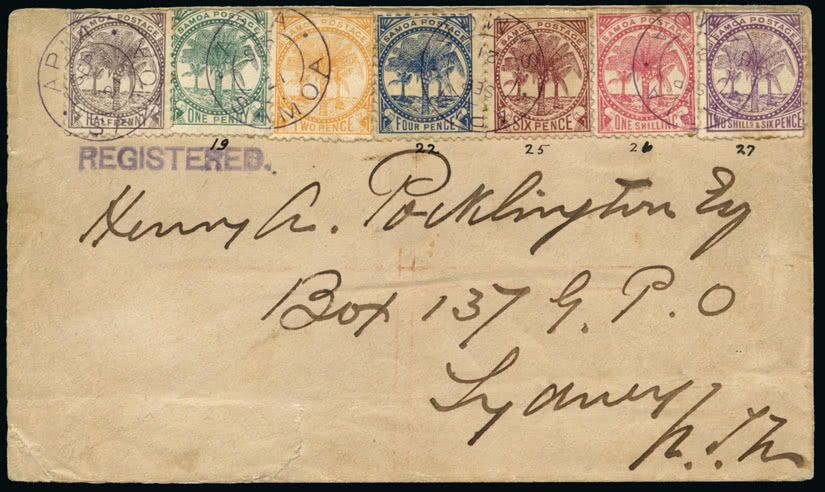 SAMOA POSTAGE SAMOA POSTAGE SAMOA POSTAGE SAMOA POSTAGE SAMOA POSTAGE SAMOA POSTAGE SAMOA POSTAGE
HALF PENNY ONE PENNY TWO PENCE FOUR PENCE SIX PENCE ONE SHILLING TWO SHILLS & SIX PENCE
APIA
SAMOA
19 22 25 26 27
REGISTERED.
Henry A. Pocklington Esq
Box 137 G. P. O
Sydney